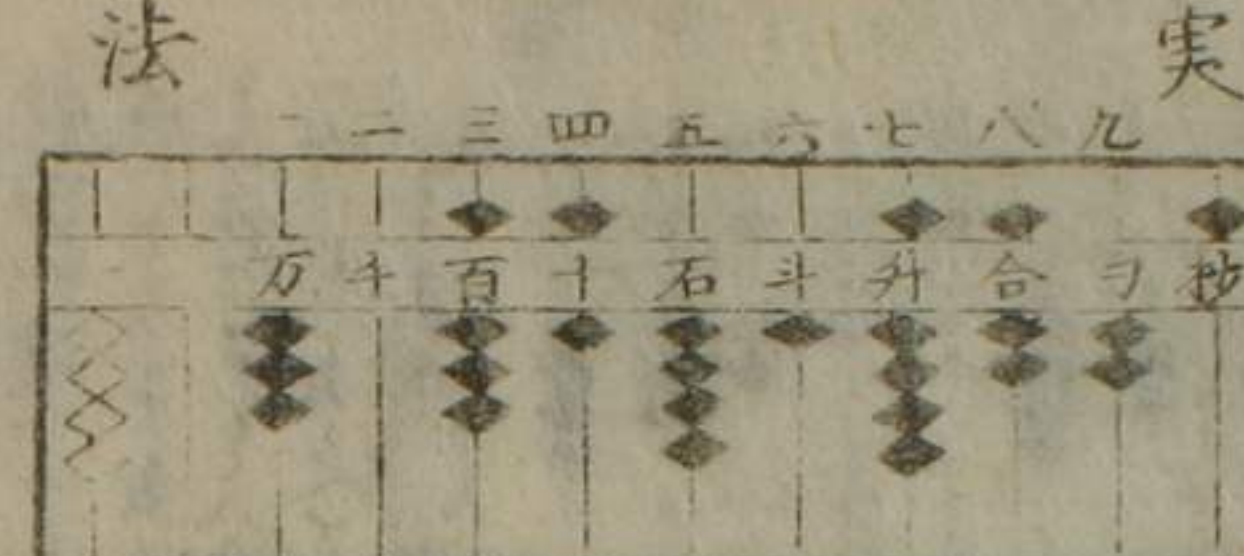 法 実
一 二 三 四 五 六 七 八 九
万 千 百 十 石 斗 升 合 勺 抄